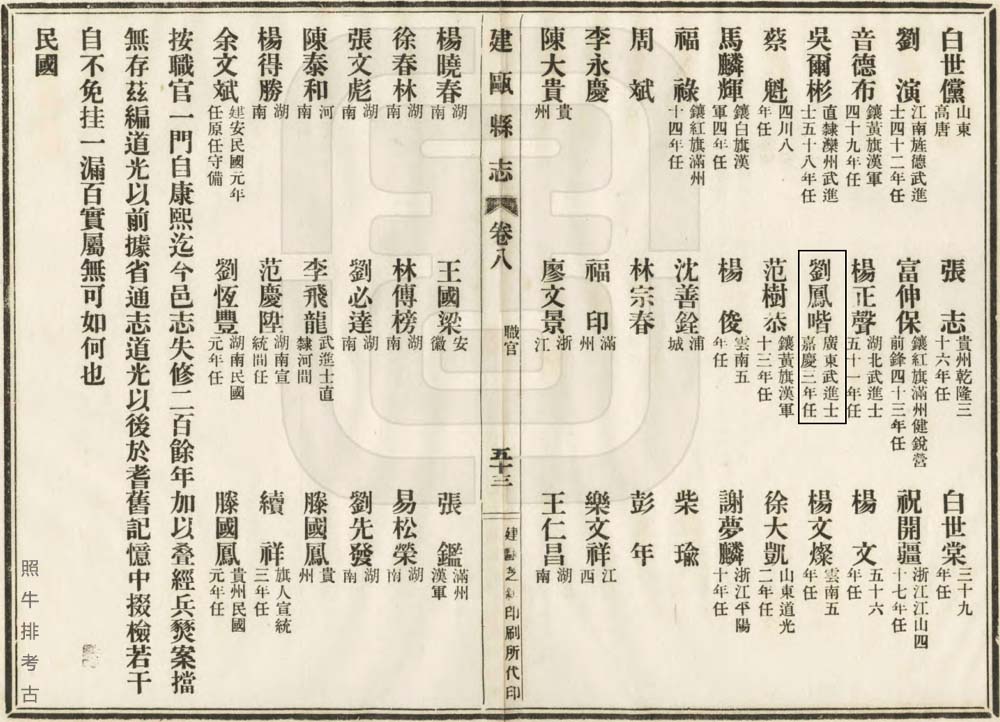 白世儻 山東高唐 張志 貴州乾隆三十六年任 白世棠 三十九年任
劉演 江南旌德武進士四十二年任 富伸保 鑲紅旗滿州健銳營前鋒四十三年任 祝開疆 浙江江山四十七年任
音德布 鑲黃旗漢軍四十九年任 楊正聲 湖北武進士五十一年任 楊文 五十六年任
吳爾彬 直隸灤州武進士五十八年任 劉鳳喈 廣東武進士嘉慶三年任 楊文燦 雲南五年任
蔡魁 四川八年任 范樹忝 鑲黃旗漢軍十三年任 徐大凱 山東道光二年任
馬麟輝 鑲白旗漢軍四年任 楊俊 雲南五年任 謝夢麟 浙江平陽十年任
福祿 鑲紅旗滿州十四年任 沈善銓 浦城 柴瑜
周斌 林宗春 彭年
李永慶 福印 滿州 樂文祥 江西
陳大貴 貴州 廖文景 浙江 王仁昌 湖南
建甌縣志 卷八 職官 五十三 建甌芝新印刷所代印
楊曉春 湖南 王國梁 安徽 張鑑 滿州漢軍
徐春林 湖南 林傳榜 湖南 易松榮 湖南
張文彪 湖南 劉必達 湖南 劉先發 湖南
陳泰和 河南 李飛龍 武進士直隸河間 滕國鳳 貴州
楊得勝 湖南 范慶陞 湖南宣統間任 續祥 旗人宣統三年任
余文斌 建安民國元年任原任守備 劉恆豐 湖南民國元年任 滕國鳳 貴州民國元年任
按職官一門自康熙迄今邑志失修二百餘年加以叠經兵燹案擋
無存茲編道光以前據省通志道光以後於耆舊記憶中掇檢若干
自不免挂一漏百實屬無可如何也
民國
照牛排考古